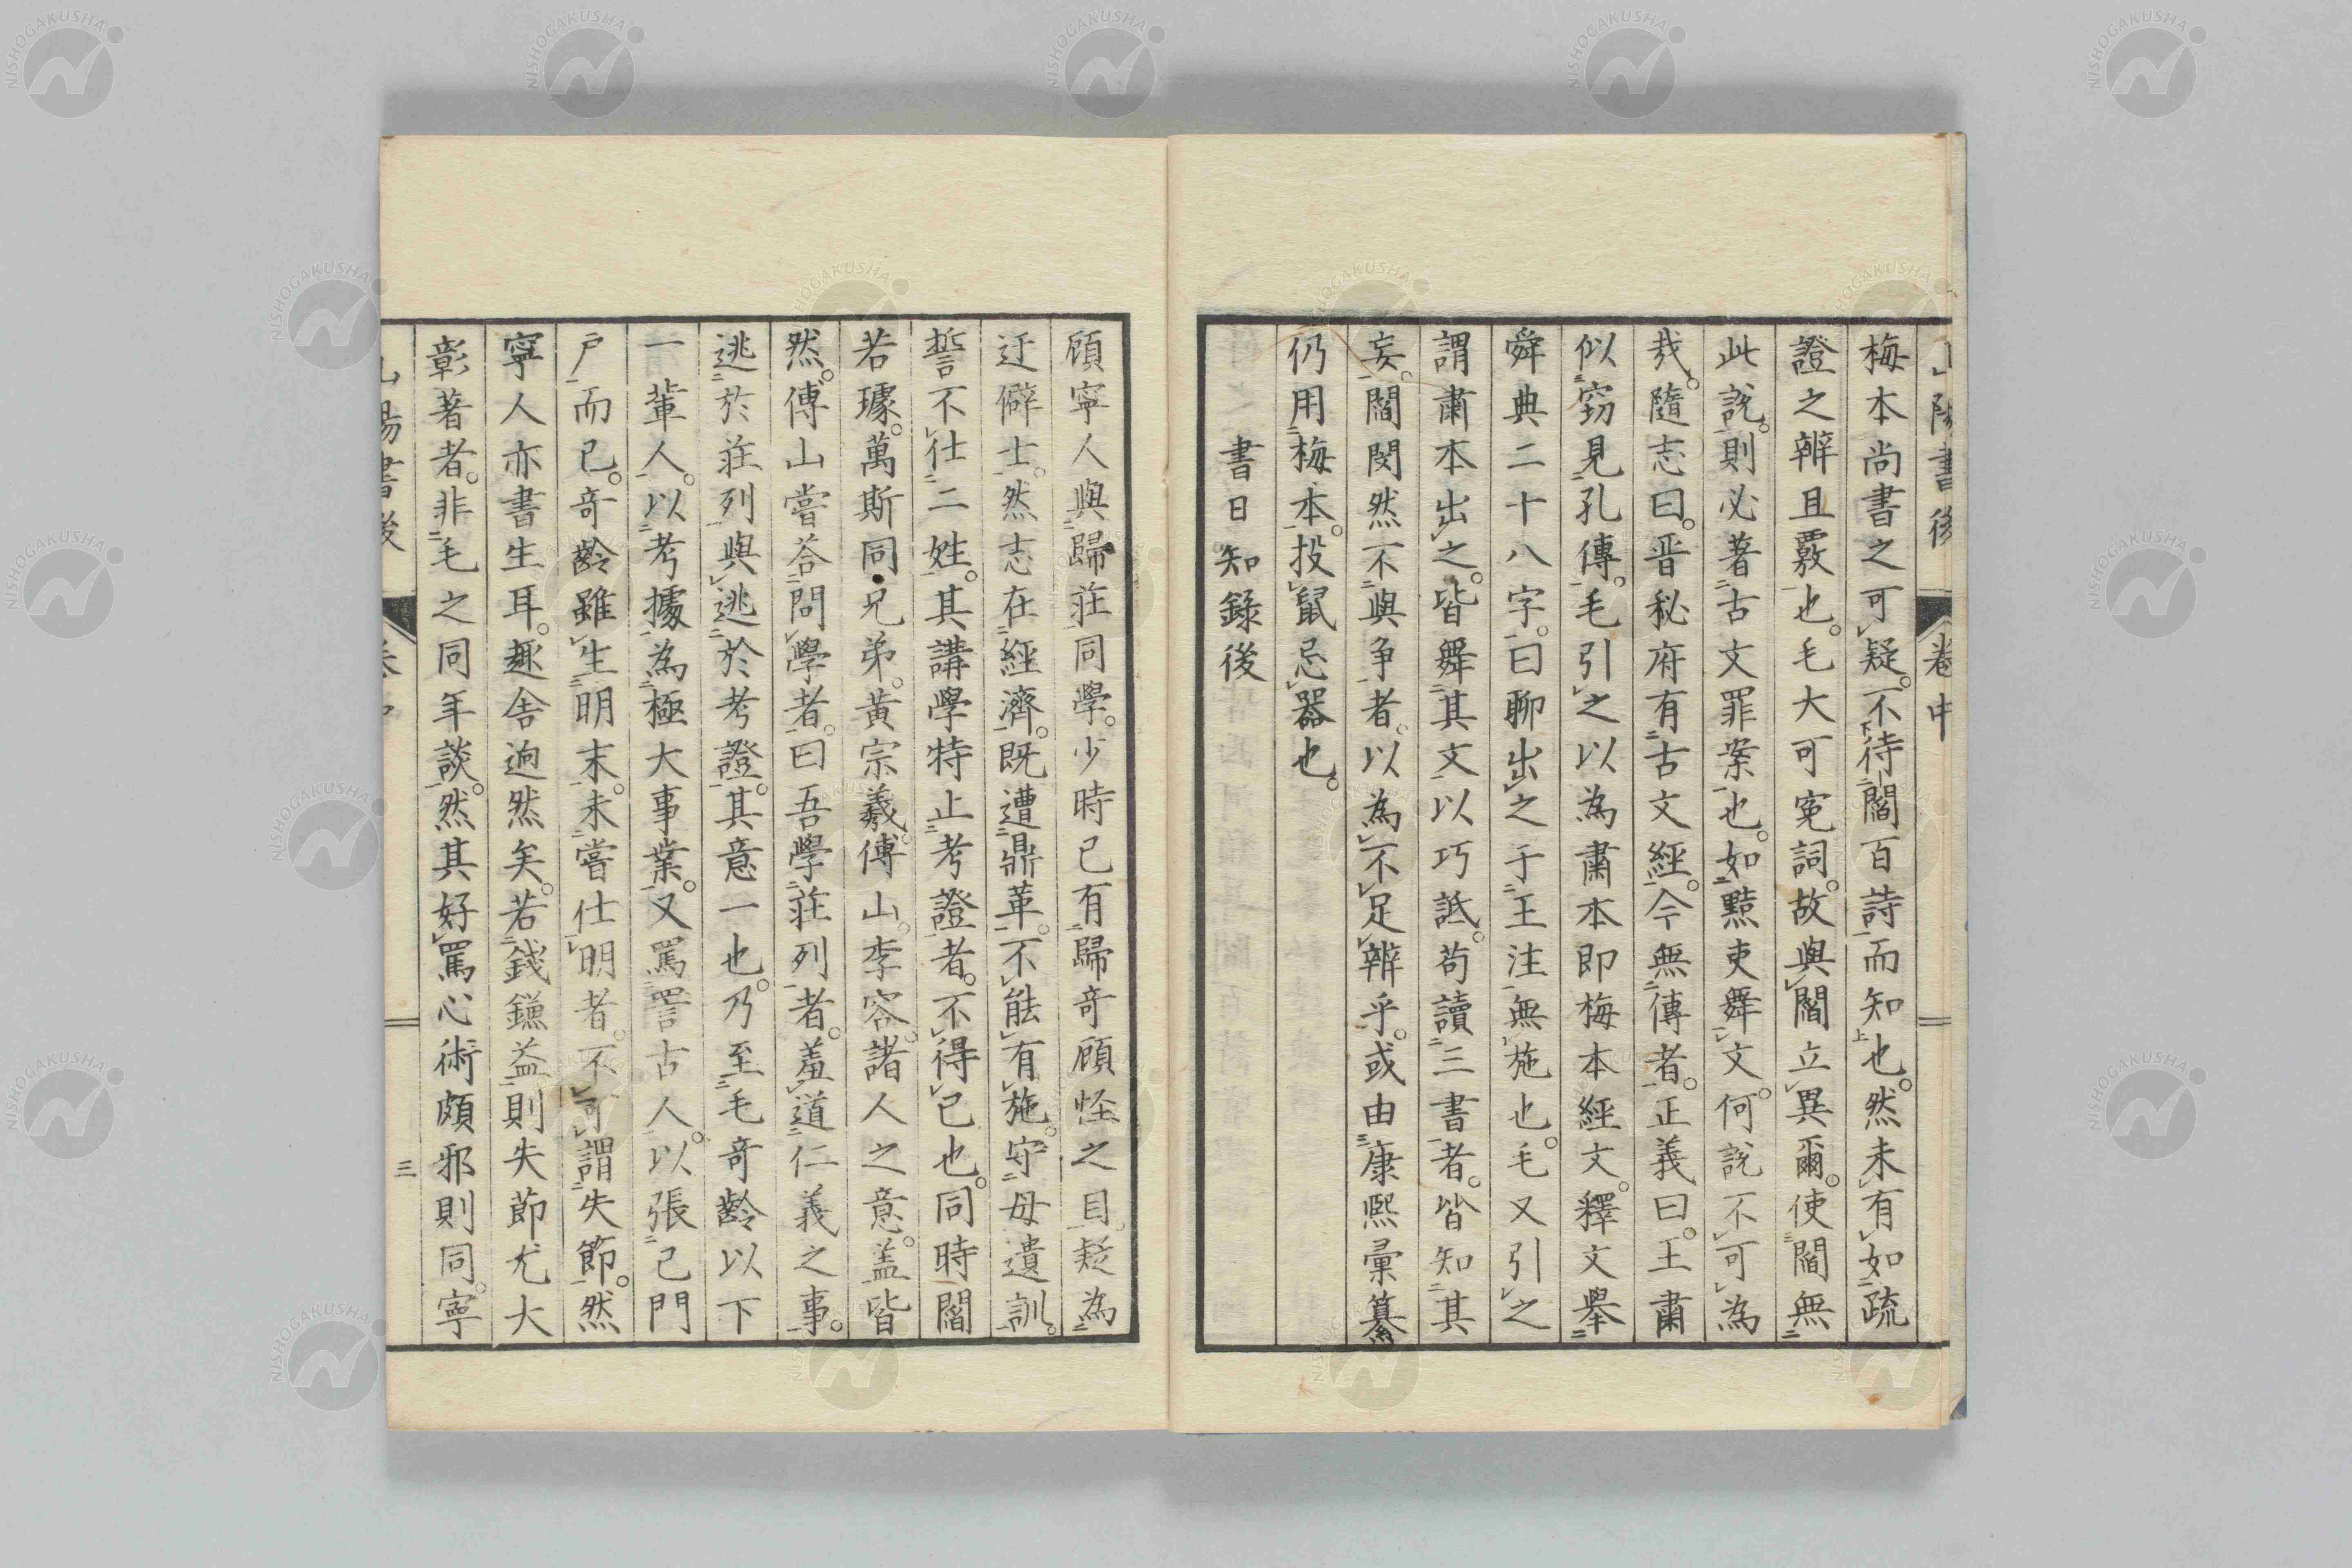 山陽書後 卷中
梅本尚書之可疑。不待閻百詩而知也。然未有如疏
證之辨且覈也。毛大可寃詞。故與閻立異爾。使閻無
此説。則必著古文罪案也。如黠吏舞文。何説不可為
哉。隨志曰。晋秘府有古文經。今無傳者。正義曰。王肅
似窃見孔傳。毛引之以為肅本即梅本經文。釋文舉
舜典二十八字。曰聊出之于王注無施也。毛又引之
謂肅本出之。皆舞其文以巧詆。苟讀三書者。皆知其
妄。閻閔然不與争者。以為不足辨乎。或由康熙彙纂
仍用梅本。投鼠忌器也。
書日知録後
顧寧人與歸莊同學。少時已有歸奇顧怪之目。疑為
迂僻士。然志在經濟。既遭鼎革。不能有施。守母遺訓。
誓不仕二姓。其講學特止考證者。不得已也。同時閻
若璩。萬斯同兄弟。黃宗羲。傅山。李容。諸人之意。盖皆
然。傅山嘗荅問學者。曰吾學莊列者。羞道仁義之事。
逃於莊列與逃於考證。其意一也。乃至毛奇齡以下
一輩人。以考據為極大事業。又罵詈古人。以張己門
戸而已。奇齡雖生明末。未嘗仕明者。不可謂失節。然
寧人亦書生耳。趣舎逈然矣。若錢鐮益則失節尤大
彰著者。非毛之同年談。然其好罵心術頗邪則同。寧
山陽書後 三